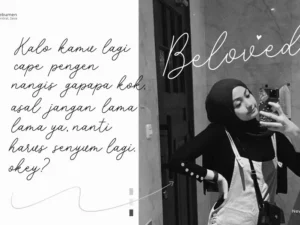 Kalo kamu lagi
cape pengen
nangis gapapa kok,
asal jangan lama
lama ya, nanti
harus senyum lagi.
okey?
Beloved